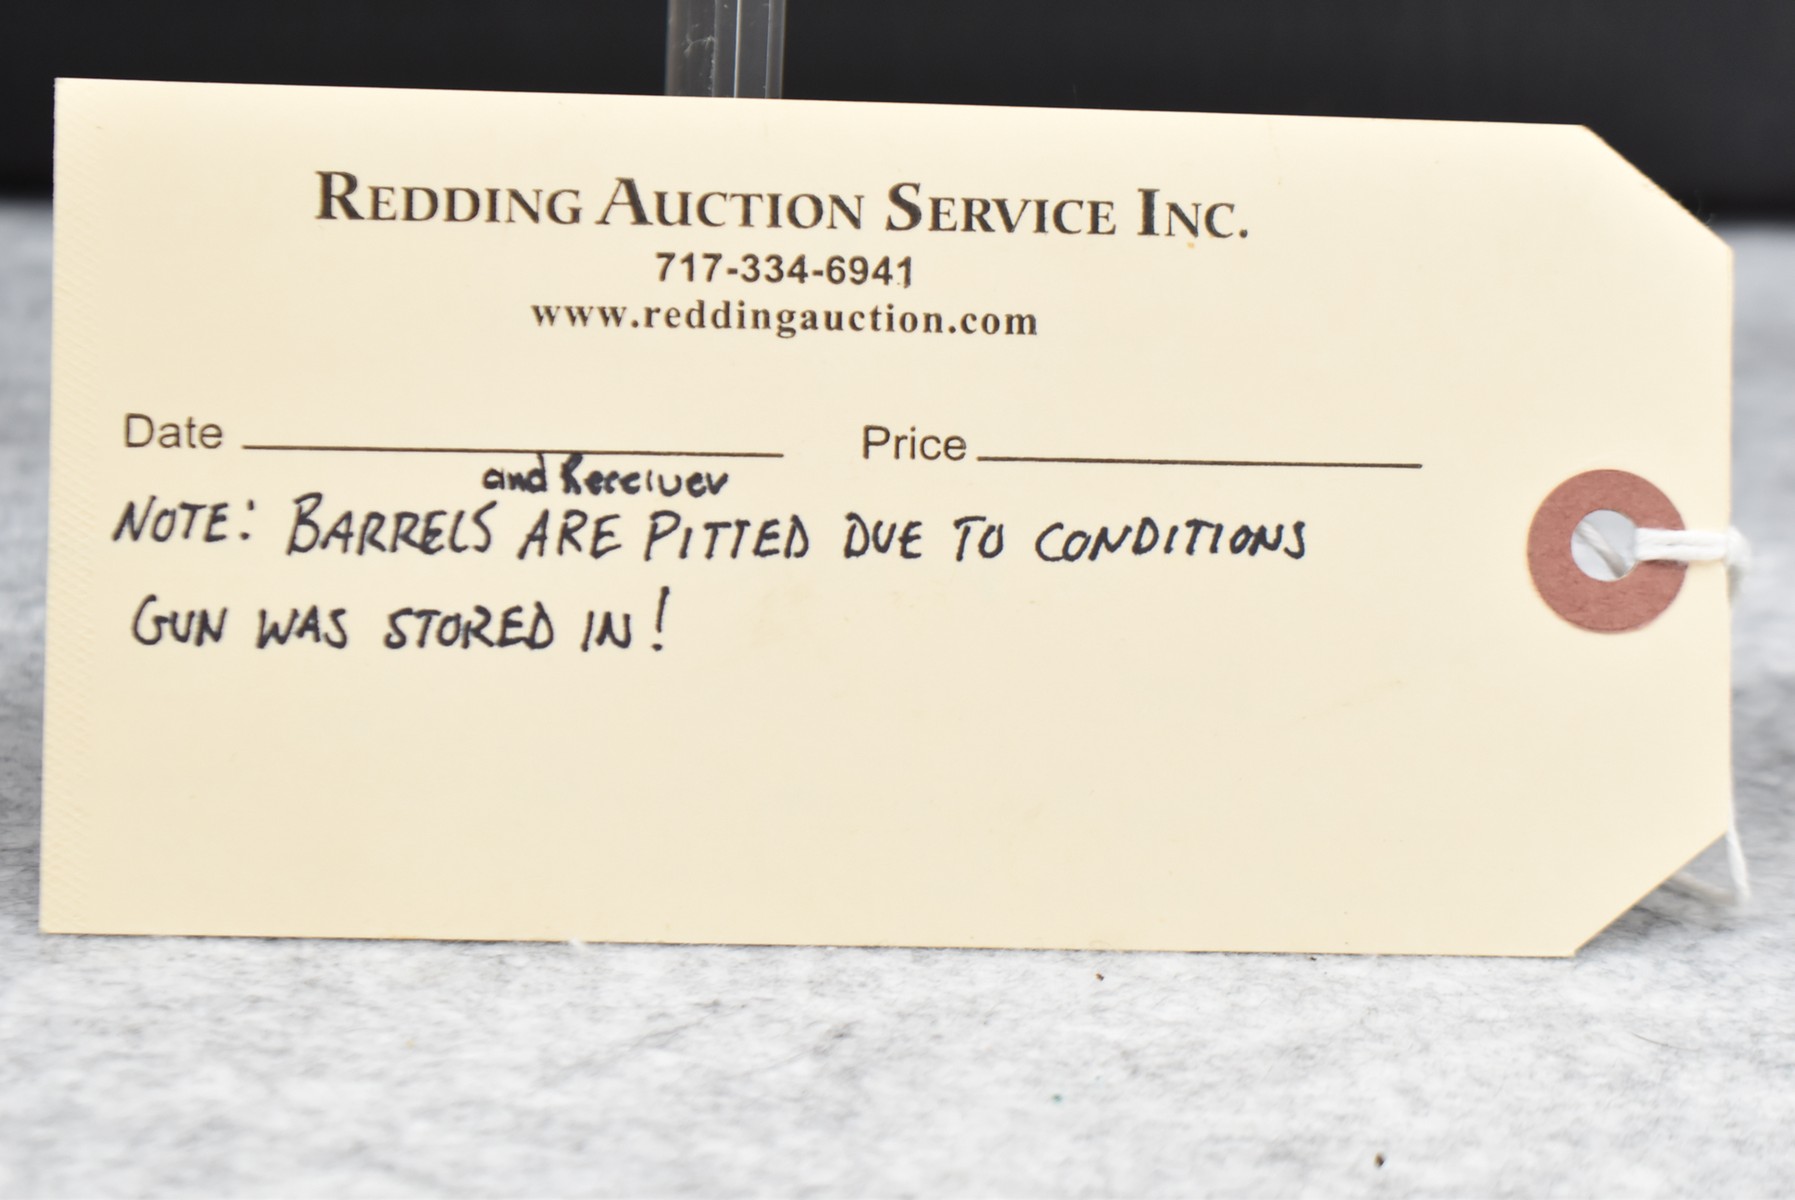 REDDING AUCTION SERVICE INC.
717-334-6941
www.reddingauction.com
Date Price
and Receiver
NOTE: BARRELS ARE PITTED DUE TO CONDITIONS
GUN WAS STORED IN!